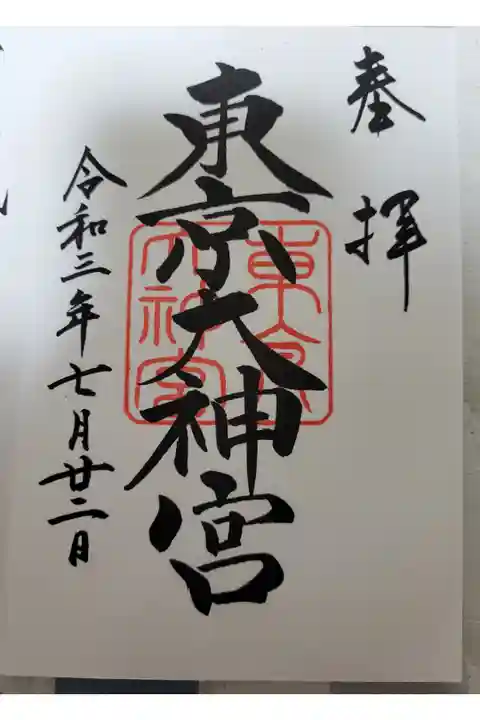 奉拝
東京大神宮
東京
大神宮
令和三年七月廿二日